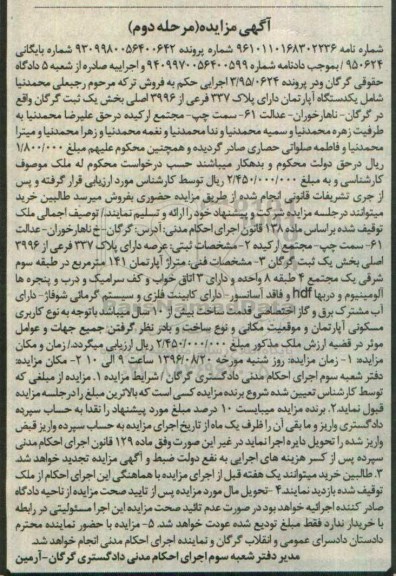 آگهی مزایده(مرحله دوم)
شماره نامه ۹۶۱۰۱۱۰۱۶۸۳۰۲۲۳۶ شماره پرونده ۹۳۰۹۹۸۰۰۵۶۴۰۰۶۴۲ شماره بایگانی
۹۵۰۶۲۴ / بموجب دادنامه شماره ۹۴۰۹۹۷۰۰۵۶۴۰۰۵۹۹ و اجراییه صادره از شعبه ۵ دادگاه
حقوقی گرگان ودر پرونده ۳/۹۵/۰۶۲۴ اجرایی حکم به فروش ترکه مرحوم رجبعلی محمدنیا
شامل یکدستگاه آپارتمان دارای پلاک ۳۳۷ فرعی از ۳۹۹۶ اصلی بخش یک ثبت گرگان واقع
در گرگان- ناهارخوران- عدالت ۶۱- سمت چپ- مجتمع ارکیده درحق علیرضا محمدنیا به
طرفیت زهره محمدنیا و سمیه محمدنیا و ندا محمدنیا و نغمه محمدنیا و زهرا محمدنیا و میترا
محمدنیا و فاطمه صلواتی حصاری صادر گردیده و همچنین محکوم علیهم مبلغ ۱/۸۰۰/۰۰۰
ریال درحق دولت محکوم و بدهکار میباشند حسب درخواست محکوم له ملک موصوف
کارشناسی و به مبلغ ۲/۴۵۰/۰۰۰/۰۰۰ ریال توسط کارشناس مورد ارزیابی قرار گرفته و پس
از جری تشریفات قانونی انجام مورد از طریق مزایده حضوری بفروش میرسد طالبین خرید
میتوانند درجلسه مزایده شرکت و پیشنهاد خود را ارائه و تسلیم نمایند./ توصیف اجمالی ملک
توقیف شده براساس ماده ۱۳۸ قانون اجرای احکام مدنی: آدرس: گرگان-خ ناهارخوران- عدالت
۶۱- سمت چپ- مجتمع ارکیده ۲- مشخصات ثبتی: عرصه دارای پلاک ۳۳۷ فرعی از ۳۹۹۶
اصلی بخش یک ثبت گرگان ۳- مشخصات فنی: متراژ آپارتمان ۱۴۱ مترمربع در طبقه سوم
شرقی یک مجتمع ۴ طبقه ۸ واحده و دارای ۳ اتاق خواب و کف سرامیک و درب و پنجره ها
آلومینیوم و دربها hdf و فاقد آسانسور- دارای کابینت فلزی و سیستم گرمائی شوفاژ- دارای
آب مشترک برق و گاز اختصاصی قدمت ساخت بیش از ۱۰ سال میباشد باتوجه به نوع کاربری
مسکونی آپارتمان و موقعیت مکانی و نوع ساخت و بادر نظر گرفتن جمیع جهات و عوامل
موثر در قضیه ارزش ملک مذکور مبلغ ۲/۴۵۰/۰۰۰/۰۰۰ ریال ارزیابی میگردد./ زمان و مکان
مزایده: ۱- زمان مزایده: روز شنبه مورخه ۱۳۹۶/۰۸/۲۰ ساعت ۹ الی ۱۰ ۲- مکان مزایده:
دفتر شعبه سوم اجرای احکام مدنی دادگستری گرگان / شرایط مزایده ۱. مزایده از مبلغی که
توسط کارشناس تعیین شده شروع برنده مزایده کسی است که بالاترین مبلغ را درجلسه مزایده
قبول نماید۲. برنده مزایده میبایست ۱۰ درصد مبلغ مورد پیشنهاد را نقدا به حساب سپرده
دادگستری واریز و ما بقی آن را ظرف یک ماه از تاریخ اجرای مزایده به حساب سپرده واریز قبض
واریز شده را تحویل دایره اجرا نماید در غیر این صورت وفق ماده ۱۲۹ قانون اجرای احکام مدنی
سپرده پس از کسر هزینه های اجرایی به نفع دولت ضبط و آگهی مزایده تجدید خواهد شد.
۳. طالبین خرید میتوانند یک هفته قبل از اجرای مزایده با هماهنگی این اجرای احکام از ملک
توقیف شده بازدید نمایند۴- تحویل مال مورد مزایده پس از تایید صحت مزایده از ناحیه دادگاه
صادر کننده اجرائیه خواهد بود در صورت عدم تائید صحت مزایده این اجرا مسئولیتی در رابطه
با خریدار ندارد فقط مبلغ تودیع شده عودت خواهد شد. ۵- مزایده با حضور نماینده محترم
دادستان دادسرای عمومی و انقلاب گرگان و نماینده اجرای احکام مدنی انجام خواهد شد.
مدیر دفتر شعبه سوم اجرای احکام مدنی دادگستری گرگان-آرمین